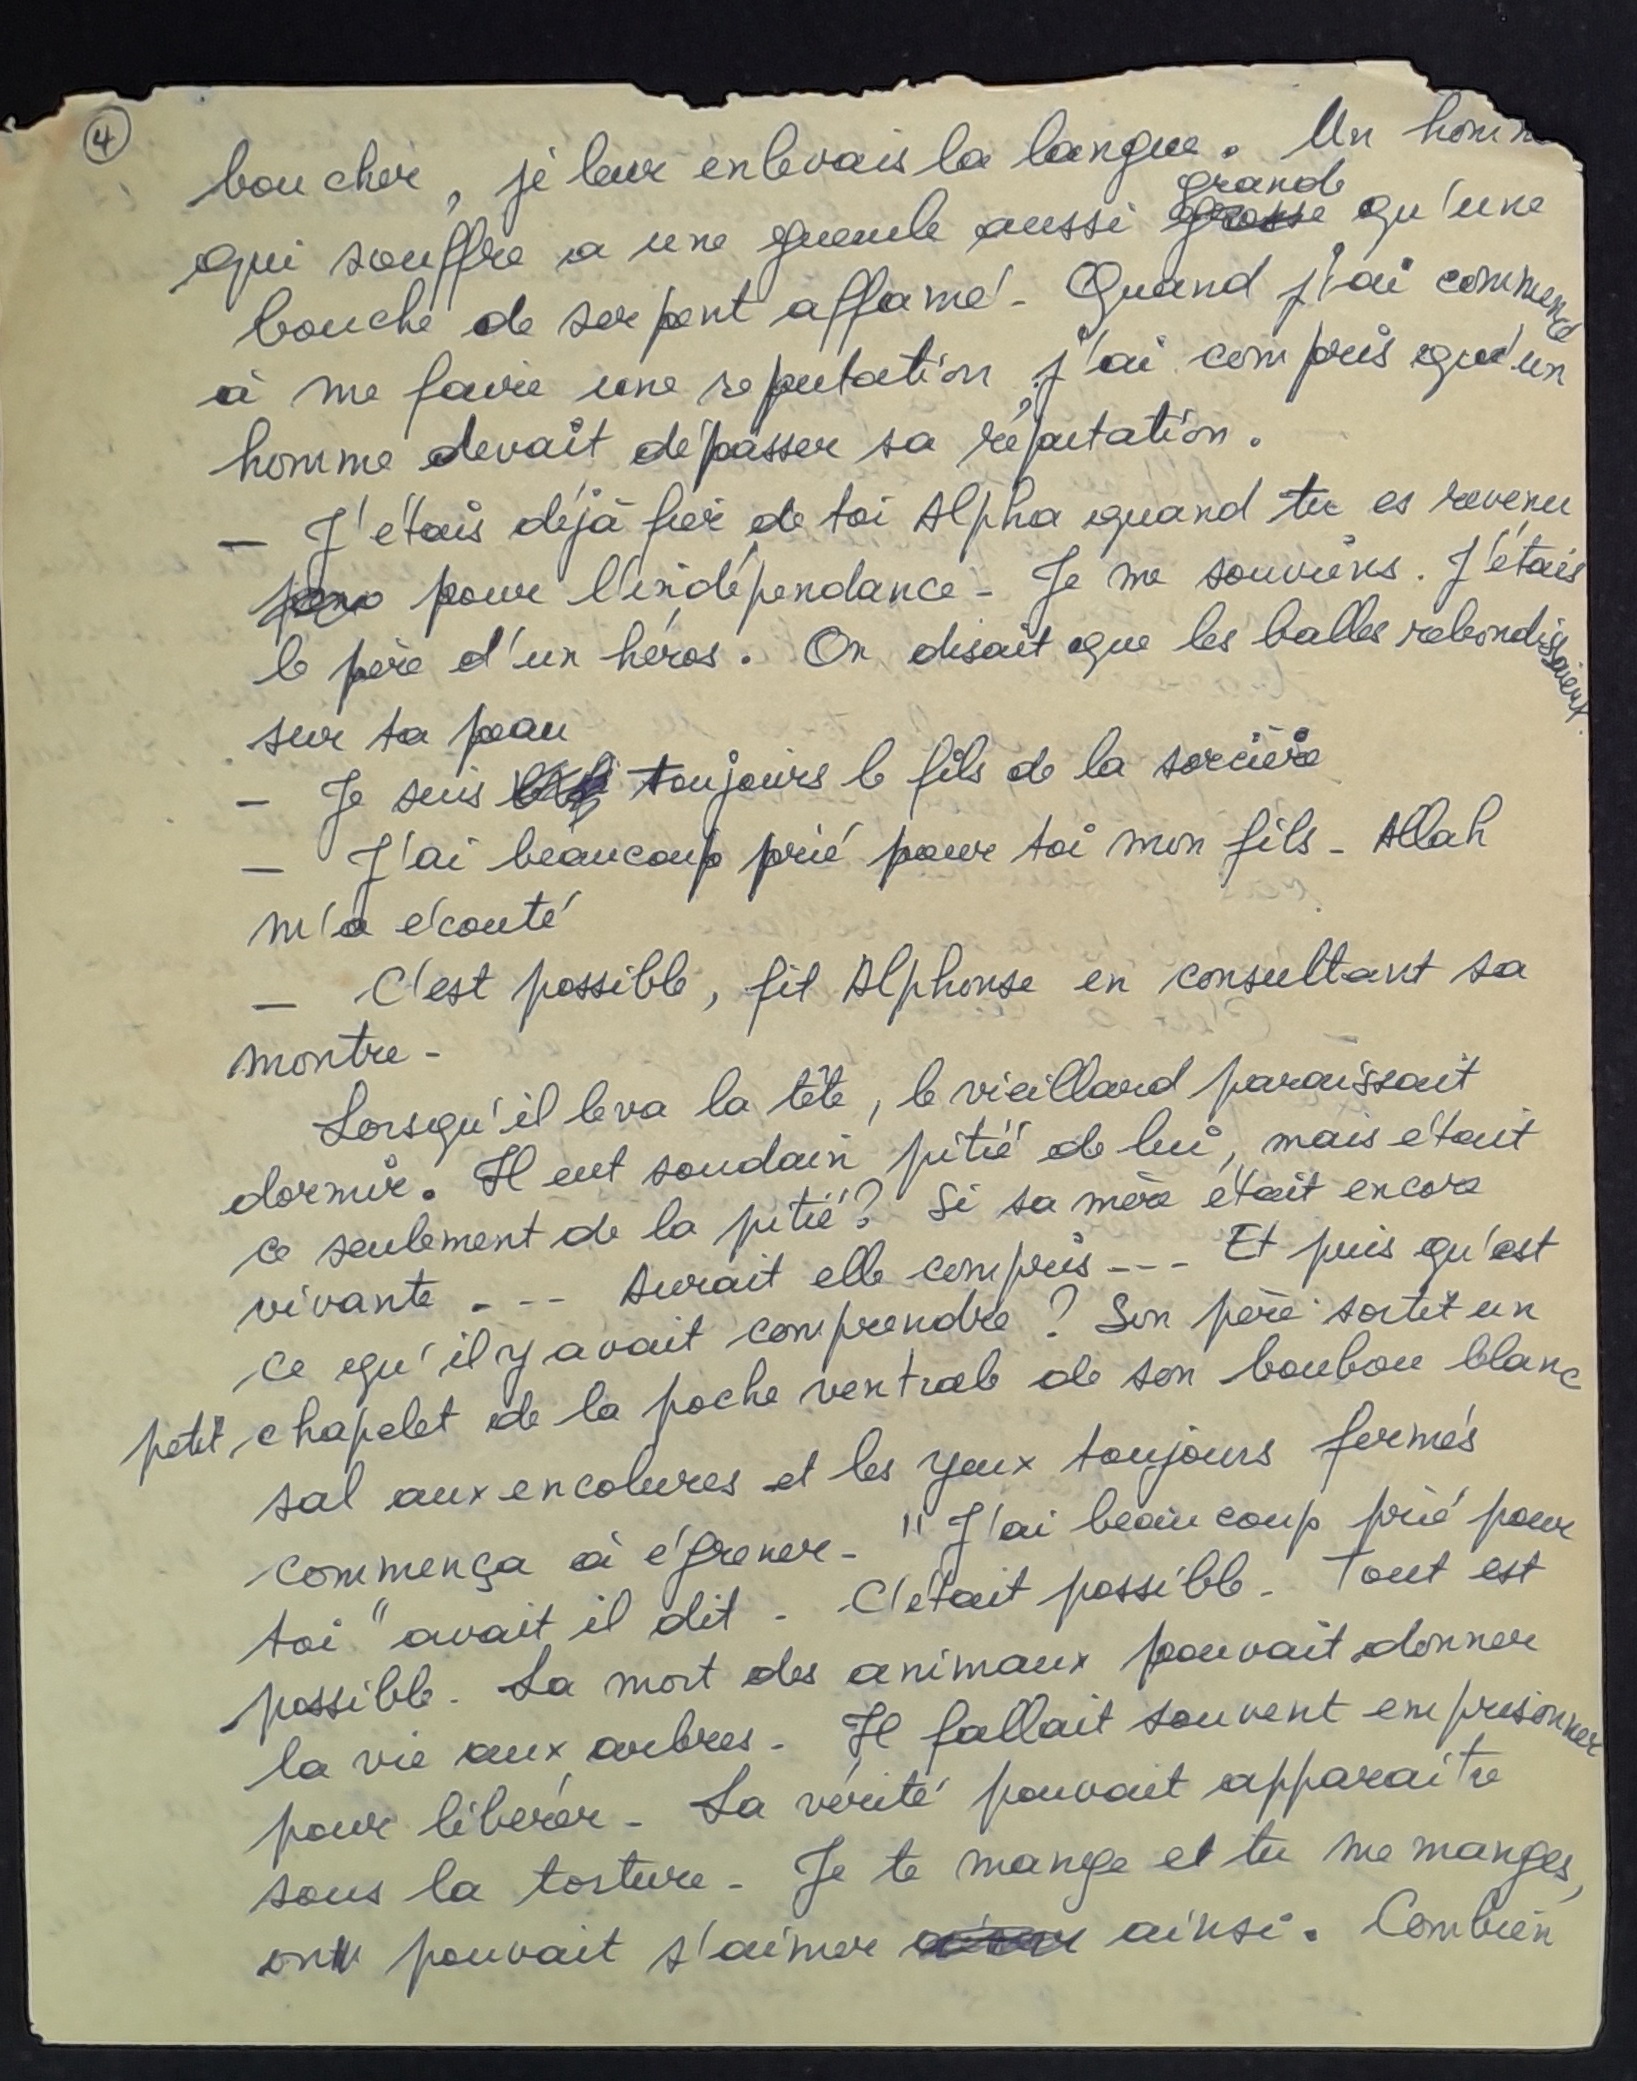 4
boucher, je leur enlevais la langue. Un homme
qui souffre a une gueule aussi grosse grande qu'une
bouche de serpent affamé - Quand j'ai commencé
à me faire une reputation j'ai compris qu'un
homme devait dépasser sa réputation.
— J'étais déjà fier de toi Alpha quand tu es revenu
pour l'indépendance - Je me souviens. J'étais
le père d'un héros. On disait que les balles rebondissaient
sur ta peau
— Je suis toujours le fils de la sorcière
— J'ai beaucoup prié pour toi mon fils - Allah
m'a écouté
— C'est possible, fit Alphonse en consultant sa
montre -
Lorsqu'il leva la tête, le vieillard paraissait
dormir. Il eut soudain pitié de lui, mais était
ce seulement de la pitié? Si sa mère était encore
vivante . - - Aurait elle compris - - - Et puis qu'est
ce qu'il y avait comprendre? Son père sortit un
petit chapelet de la poche ventrale de son boubou blanc
sal aux encolures et les yeux toujours fermés
commença à égrener - " J'ai beaucoup prié pour
toi " avait il dit - C'était possible - Tout est
possible. La mort des animaux pouvait donner
la vie aux arbres - Il fallait souvent emprisonner
pour libérer - La vérité pouvait apparaître
sous la torture - Je te mange et tu me manges,
on pouvait s'aimer ainsi. Combien